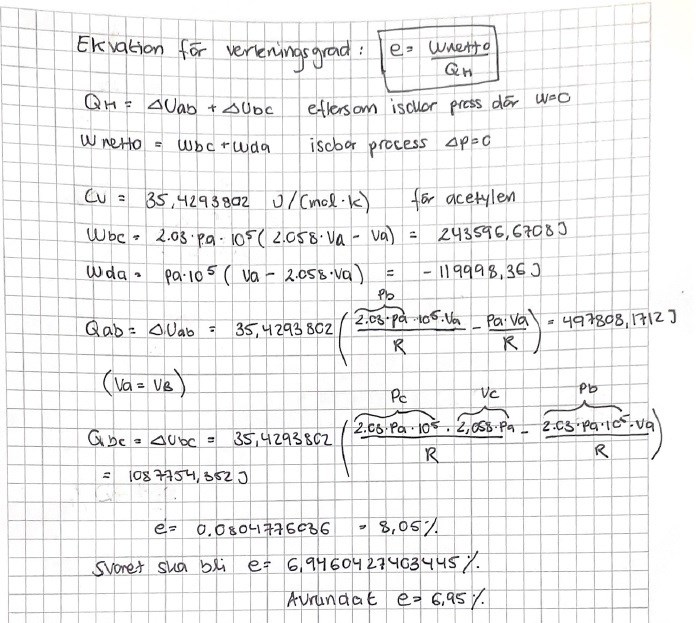 Ekvation för verkningsgrad: e = Wnetto / QH
QH = ΔUab + ΔUbc eftersom isochor press där W=0
Wnetto = Wbc + Wda isobor process ΔP=0
Cv = 35,4293802 J/(mol·K) för acetylen
Wbc = 2.03·Pa·10^5 (2.058·Va - Va) = 243596,6708J
Wda = Pa·10^5 (Va - 2.058·Va) = -119998,36J
Pb
Qab = ΔUab = 35,4293802 (2.03·Pa·10^5·Va / R - Pa·Va / R) = 497808,1712J
(Va = VB)
Pc Vc Pb
Qbc = ΔUbc = 35,4293802 (2.03·Pa·10^5·2,058·Pa / R - 2.03·Pa·10^5·Va / R)
= 1087754,352J
e = 0.0804776036 = 8,05%
Svaret ska bli e = 6,9460427403445%
Avrundat e = 6,95%